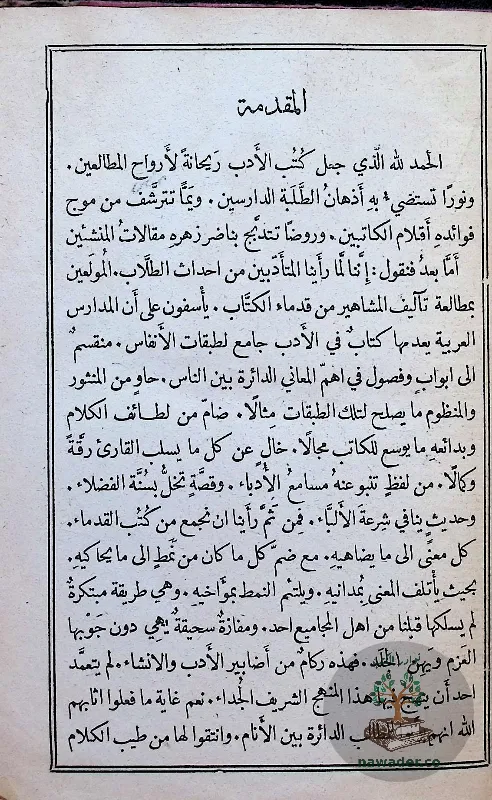 المقدمة
الحمد لله الَّذي جعل كُتُب الأَدب رَيحانةً لأَرواح المطالعين .
ونورًا تستضيء به أَذهانُ الطَّلَبة الدارسين . ويَمًّا تترشَّف من موج
فوائده أَقلام الكاتبين . وروضًا تتدبَّج بناضر زهره مقالات المنشئين
أَمَّا بعد فنقول : إننا لمَّا رأينا المتأَدّبين من احداث الطلَّاب . المُولَعين
بمطالعة تآليف المشاهير من قدماء الكتَّاب . يأْسفون على أَن المدارس
العربية يعدمها كتابٌ في الأَدب جامع لطبقات الأَنفاس . منقسمٌ
الى ابوابٍ وفصول في اهمّ المعاني الدائرة بين الناس . حاوٍ من المنثور
والمنظوم ما يصلح لتلك الطبقات مِثالًا . ضامّ من لطائف الكلام
وبدائعه ما يوسع للكاتب مجالًا . خالٍ عن كل ما يسلب القارئ رقَّةً
وكمالًا . من لفظٍ تنبو عنهُ مسامعُ الأُدباء . وقصَّةٍ تخلُّ بسُنَّة الفضلاء .
وحديثٍ ينافي شرعةَ الألبَّاء . فمِن ثَمَّ رأَينا ان نجمع من كُتُب القدماء .
كل معنًى الى ما يضاهيهِ . مع ضمّ كل ما كان من نَمَطٍ الى ما يحاكيهِ .
بحيث يأتلف المعنى بمُدانيهِ . ويلتئم النمط بموَّاخيهِ . وهي طريقة مبتكرةٌ
لم يسلكها قبلنا من اهل المجاميع احد . ومفازةٌ سحيقةٌ يهي دون جَوبها
العزم ويَهِنُ الجَلَد . فهذه ركامٌ من أَضابير الأَدب والانشاء . لم يتعمَّد
احد أَن ينهج فيها هذا المنهج الشريف الجُداء . نعم غاية ما فعلوا اثابهم
الله انهم المطالب الدائرة بين الأَنام . وانتقوا لها من طيب الكلام
nawader.co